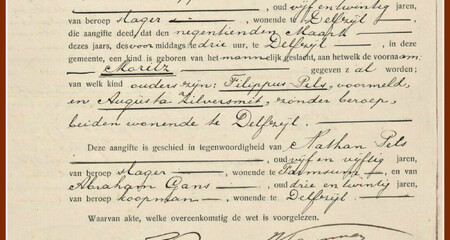 oud vijf en twintig jaren,
van beroep slager, wonende te Delfzijl
die aangifte deed, dat den negentienden Maart
dezes jaars, des voormiddags te drie uur, te Delfzijl, in deze
gemeente, een kind is geboren van het mannelijk geslacht, aan hetwelk de voornaam,
Moritz gegeven zal worden;
van welk kind ouders zijn: Filippus Pels, voormeld,
en Augusta Zilversmit, zonder beroep,
beiden wonende te Delfzijl.
Deze aangifte is geschied in tegenwoordigheid van Nathan Pels
, oud vijf en vijftig jaren,
van beroep slager, wonende te Farmsum, en van
Abraham Gans, oud drie en twintig jaren,
van beroep koopman, wonende te Delfzijl.
Waarvan akte, welke overeenkomstig de wet is voorgelezen.